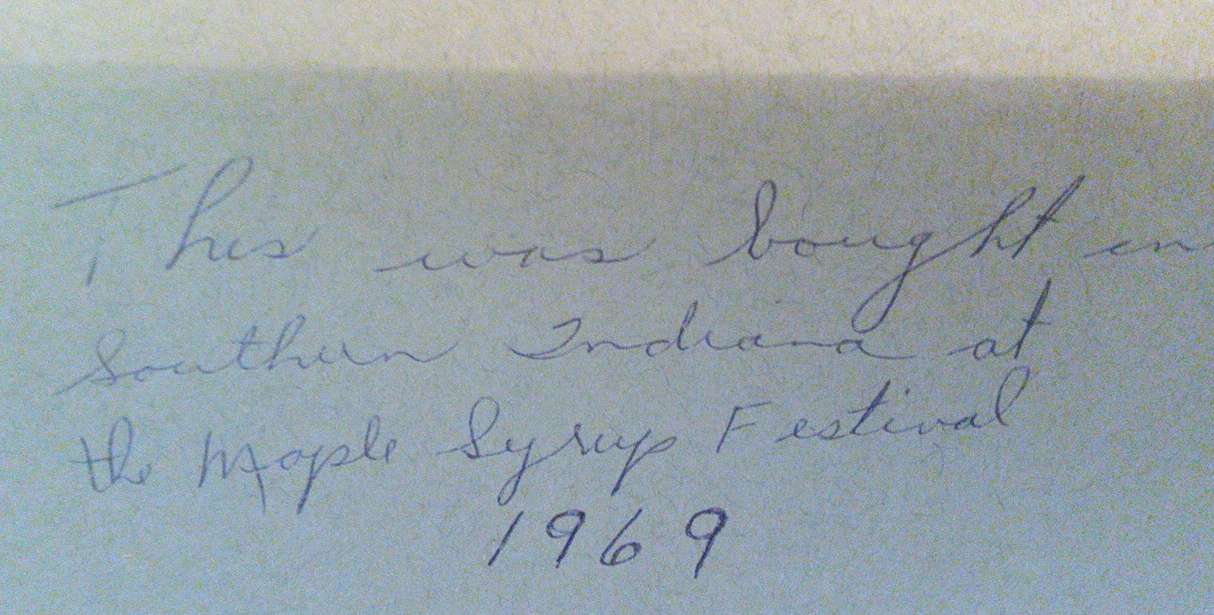 This was bought in
Southern Indiana at
the Maple Syrup Festival
1969